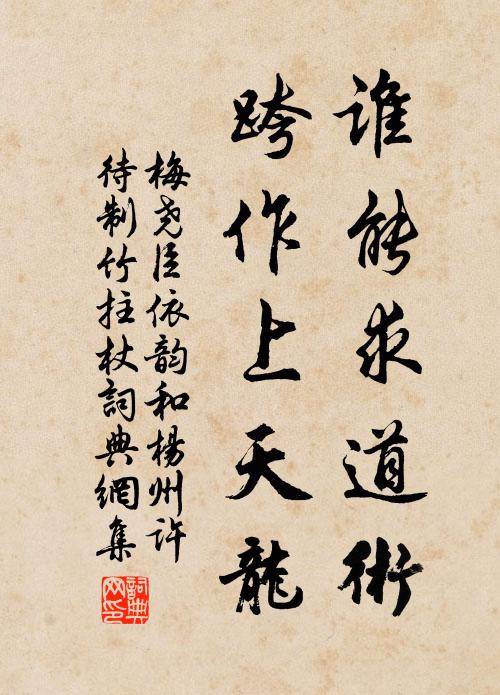 誰能求道術
跨作上天龍
梅堯臣依韵和楊州許
待制竹拄杖詞典網集
詞典網印